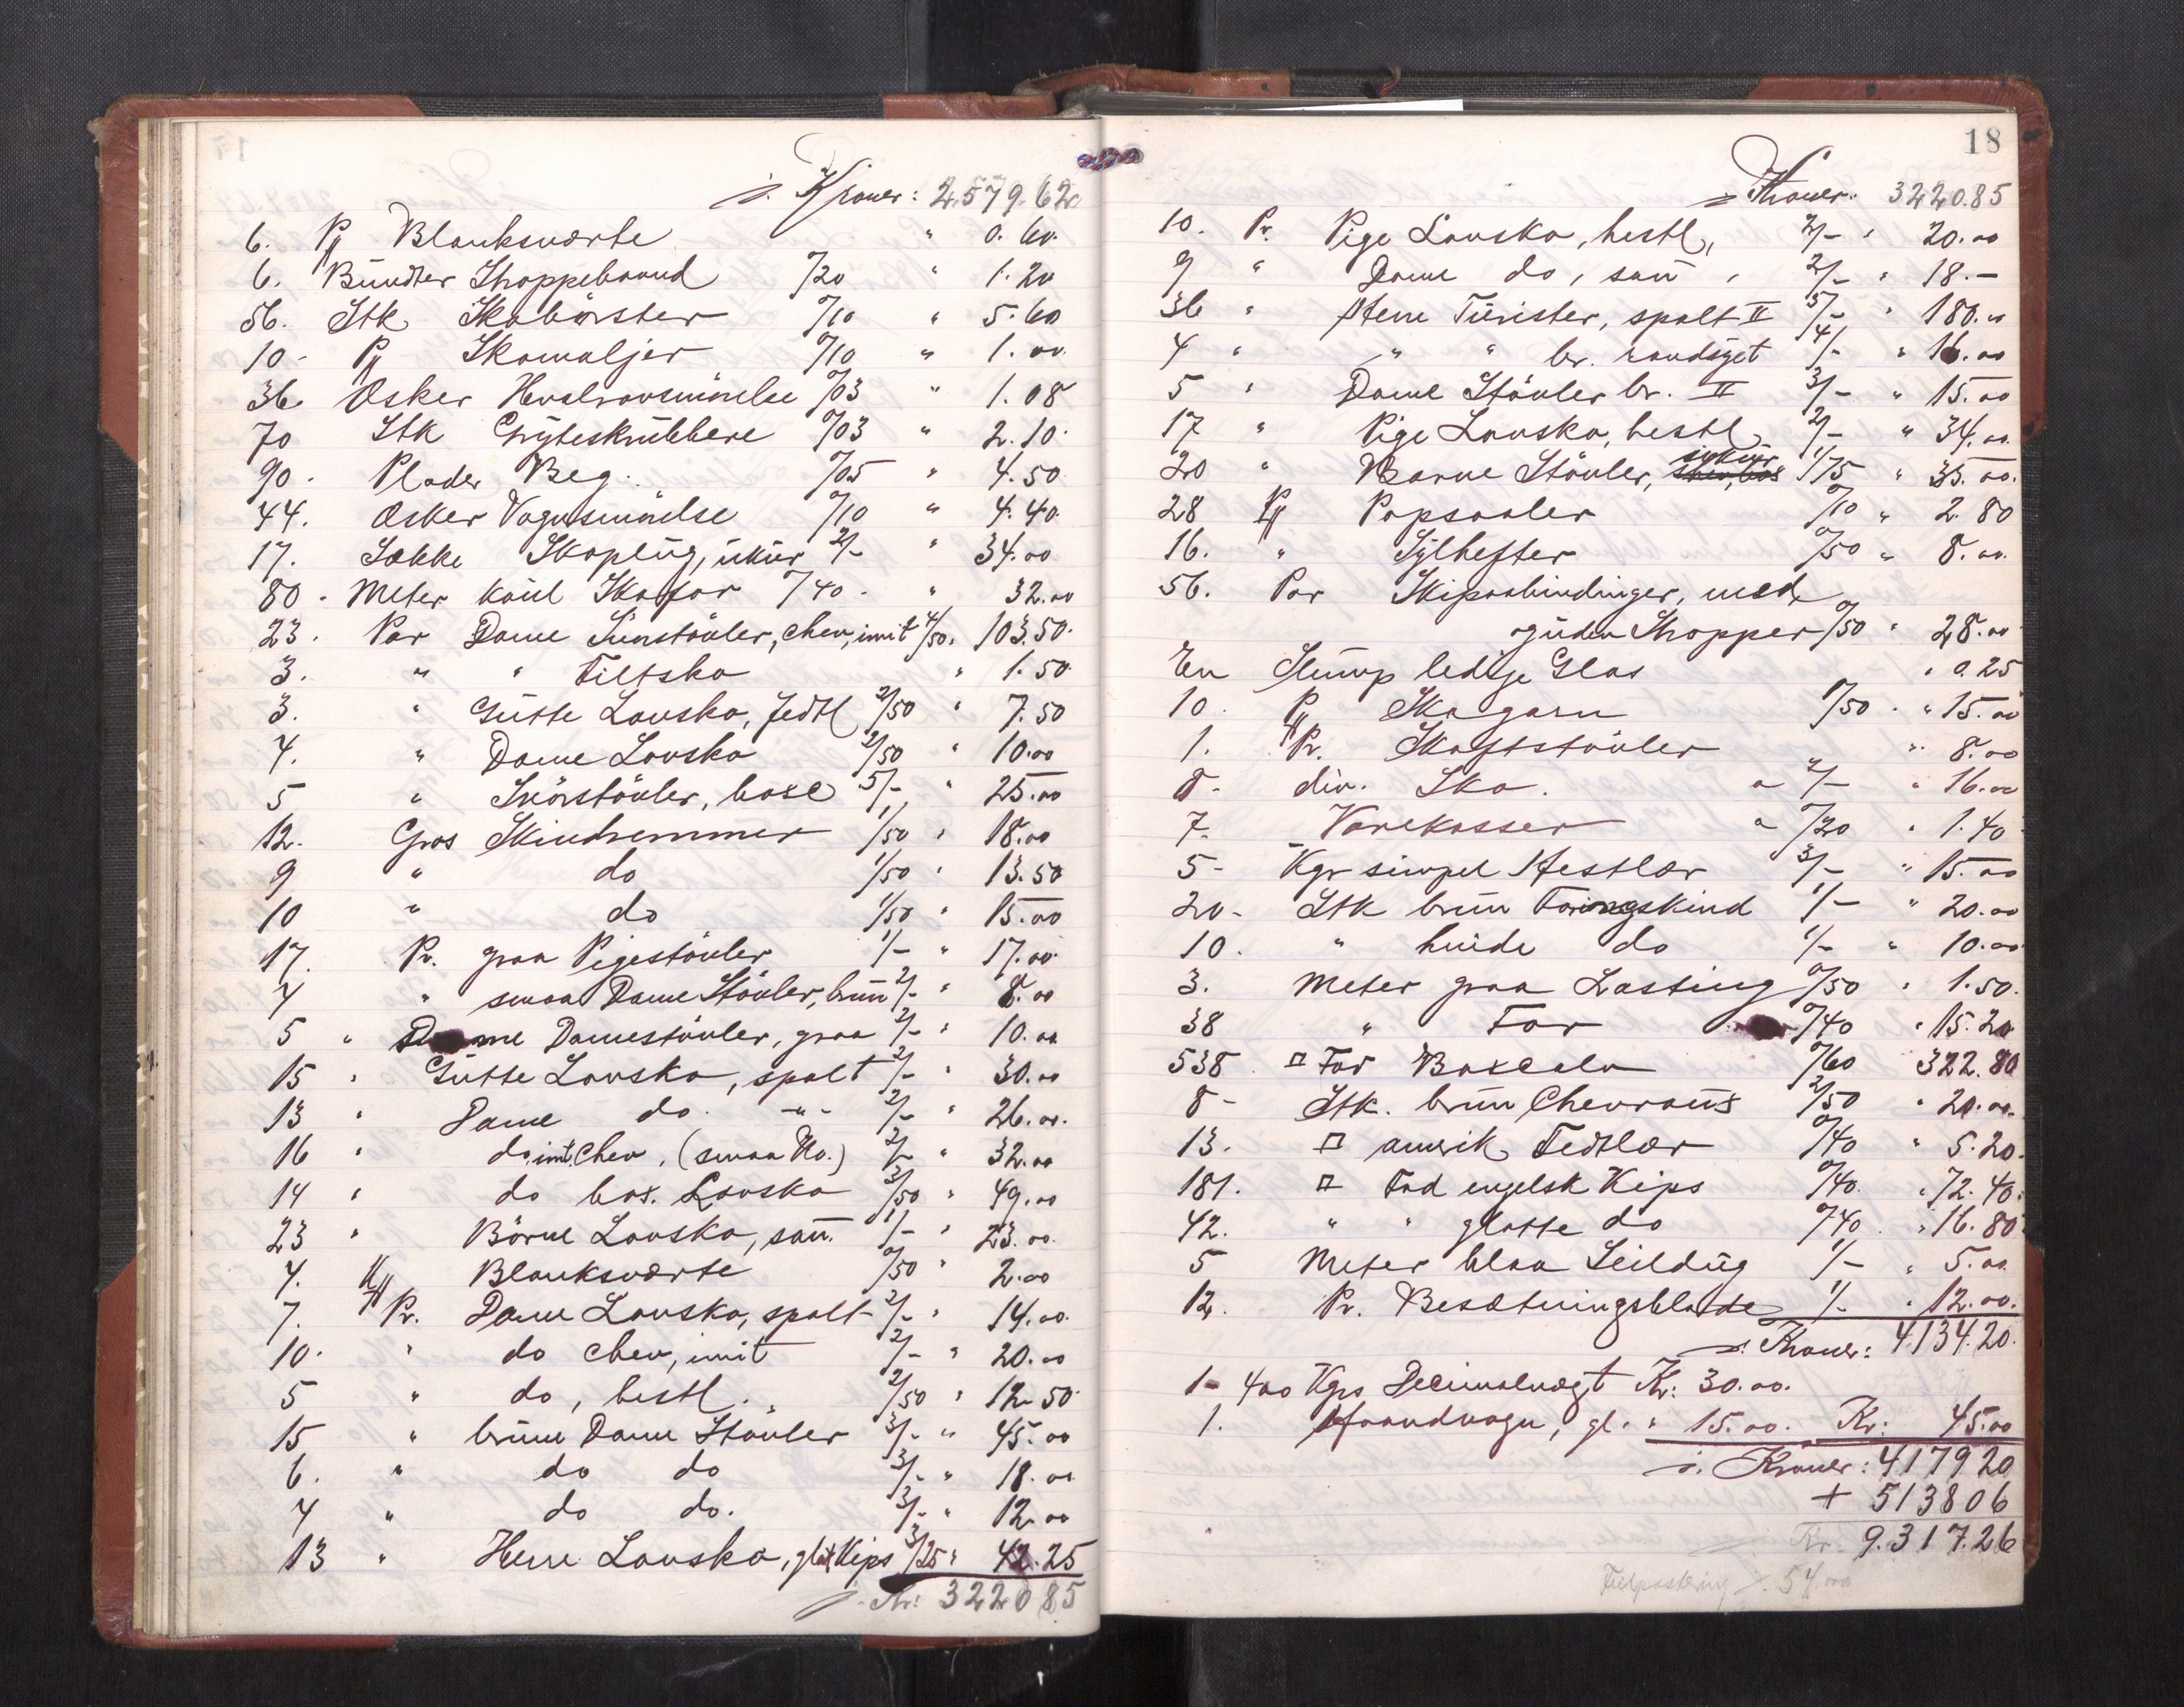 Kroner: 2.579.62
6. Pk Blanksværte " 0.60.
6. Bundter Stroppebaand /20 " 1.20
56. Stk Skobörster /10 " 5.60
10 - Pk Skomaljer /10 " 1.00
36 Æsker Hvalravsmörelse /03 " 1.08
70 Stk Gryteskrubbere /03 " 2.10.
90. Plader Beg. /05 " 4.50
44. Æsker Vognsmörelse /10 " 4.40.
17. Sække Skoplug, ukur 2/- " 34.00
80. Meter koul Skofor /40 - " 32.00
23. Par Dame Snörstövler, chev, imit 4/50. 103.50.
3. " " Filtsko " 1.50
3. " Gutte Lavsko, fedtl 2/50 " 7.50
4. " Dame Lavsko 2/50 " 10.00
5 " Snörstövler, boxc 5/- " 25.00
12. Gros Skindremmer 1/50 " 18.00
9 " do 1/50 " 13.50
10 " do 1/50 " 15.00
17. Pr. graa Pigestövler 1/- " 17.00
4 " smaa Dame Stövler, brun 2/- " 8.00
5 " Dame Damestövler, graa 2/- " 10.00
15 " Gutte Lavsko, spalt 2/- " 30.00
13 " Dame do. -"- 2/- " 26.00.
16 " do imt. Chev, (smaa No.) 2/- " 32.00
14 " do box. Lavsko 3/50 " 49.00
23 " Börne Lavsko, sau. 1/- " 23.00.
4. Pk Blanksværte /50 " 2.00
7. Pr. Dame Lavsko, spalt 2/- " 14.00.
10. " do chev, imit 2/- " 20.00
5 " do, hestl. 2/50 " 12.50
15 " brune Dame Stövler 3/- " 45.00
6. " do do 3/- " 18.00
4 " do do. 3/- " 12.00
13 " Herre Lavsko, glat Kips 3/25 " 42.25
Kr: 3220 85
18
Kroner: 3220.85
10. Pr. Pige Lavsko, hestl, 2/- " 20.00
9 " Dame do, sau, 2/- " 18.-
36 " Herre Turister, spalt II 5/- " 180.00
4 " " " br. randsyet 4/- " 16.00
5 " Dame Stövler br. II 3/- " 15.00
17 " Pige Lavsko, hestl 2/- " 34.00.
20 " Barne Stövler, ukur 1/75 " 35.00.
28 Pk Papsaaler /10 " 2.80
16. " Sylhefter /50 " 8.00.
56. Par Skipaabindinger, med
uden Stropper /50 " 28.00
En Slump ledige Glas " 0.25
10. Pk Skogarn 1/50 " 15.00
1. Pr. Skaftstövler " 8.00
8 - div. Sko. a 2/- " 16.00
7. Varekasser a /20 " 1.40
5 - Kgr simpel Hestlær 3/- " 15.00
20 - Stk brun Foringskind 1/- " 20.00
10. " hvide do 1/- " 10.00
3. Meter graa Lasting /50 " 1.50.
38 " For /40 " 15.20
538. □ Fod Boxcalv /60 322.80
8 - Stk. brun Chevraus 2/50 " 20.00.
13. □ amerik Fedtlær /40 " 5.20.
181. □ Fod engelsk Kips /40. " 72.40.
42. " " glatte do /40. " 16.80
5 Meter blaa Seildug 1/- " 5.00.
12. Pr. Besætningsblade 1/- " 12.00.
Kroner: 4.134.20.
1 - 400 Kgrs Decimalvægt Kr: 30.00.
1. Haandvogn, gl. " 15.00. Kr: 45.00
Kroner: 4179 20
+ 5138 06
Kr: 9.317.26
Feilpostering 54.00